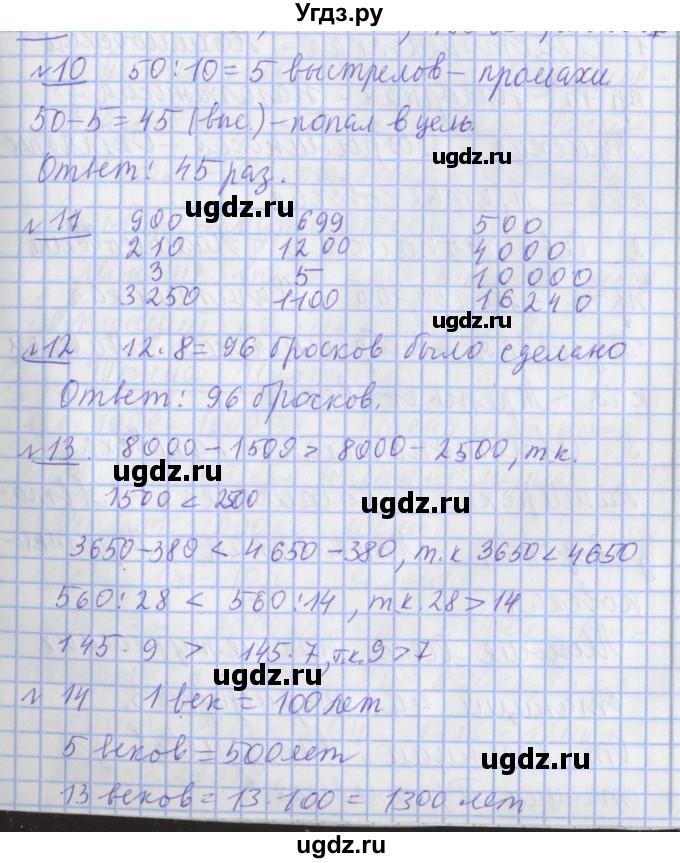 Угдз.ру
№10 50:10=5 выстрелов- промахи
50-5=45 (выс.)-попал в цель.
ugdz.ru
Ответ: 45 раз.
ugdz.ru
№11 900 699 500
210 1200 4000
3 5 10000
3250 1100 16240
ugdz.ru
ugdz.ru
№12 12·8=96 бросков было сделано
Ответ: 96 бросков.
№13. 8000-1500> 8000-2500, т.к.
ugdz.ru
1500<2500
ugdz.ru
3650-380<4650-380, т.к 3650<4650
560:28 < 560:14, т.к. 28>14
145·9 > 145·7, т.к. 9>7
ugdz.ru
№14 1 век = 100 лет
5 веков = 500 лет
ugdz.ru
13 веков= 13·100= 1300 лет
ugdz.ru